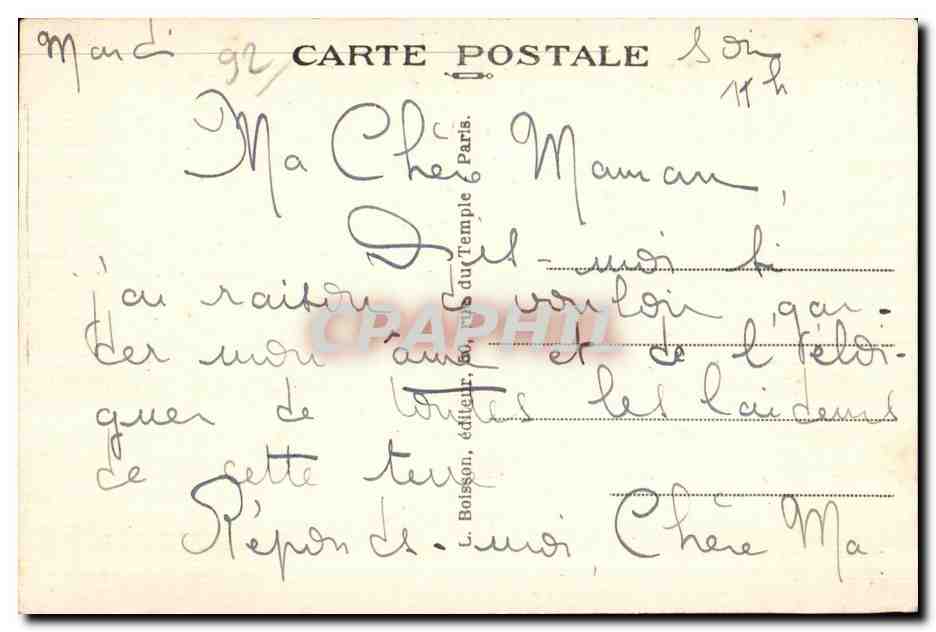 Mardi 92 CARTE POSTALE Soir
11h
Ma Chère Maman,
Dis-moi si
j'ai raison de vouloir gar-
der mon âme et de l'éloi-
gner de toutes les laideurs
de cette terre
Réponds-moi Chère Ma
L. Boisson, éditeur, 50, rue du Temple Paris.
CPAPHIL